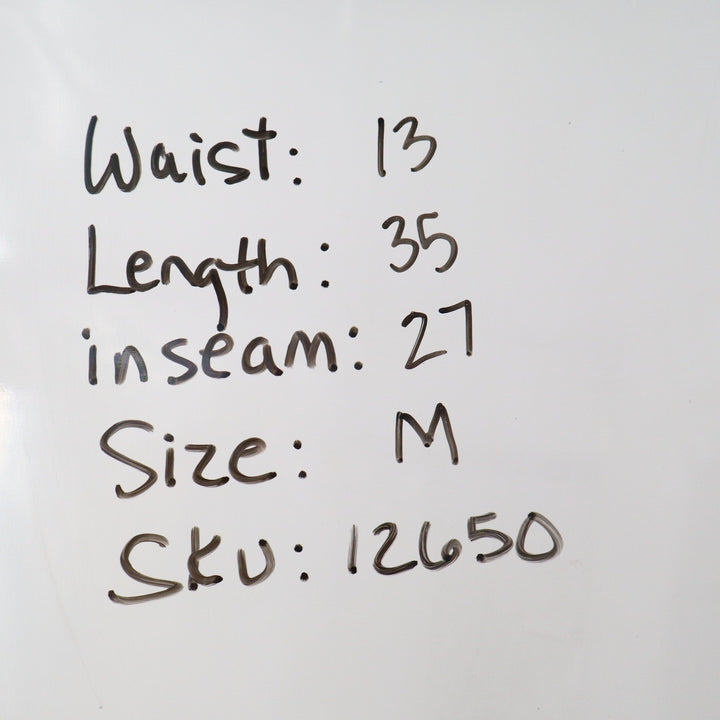 Waist: 13
Length: 35
inseam: 27
Size: M
Sku: 12650